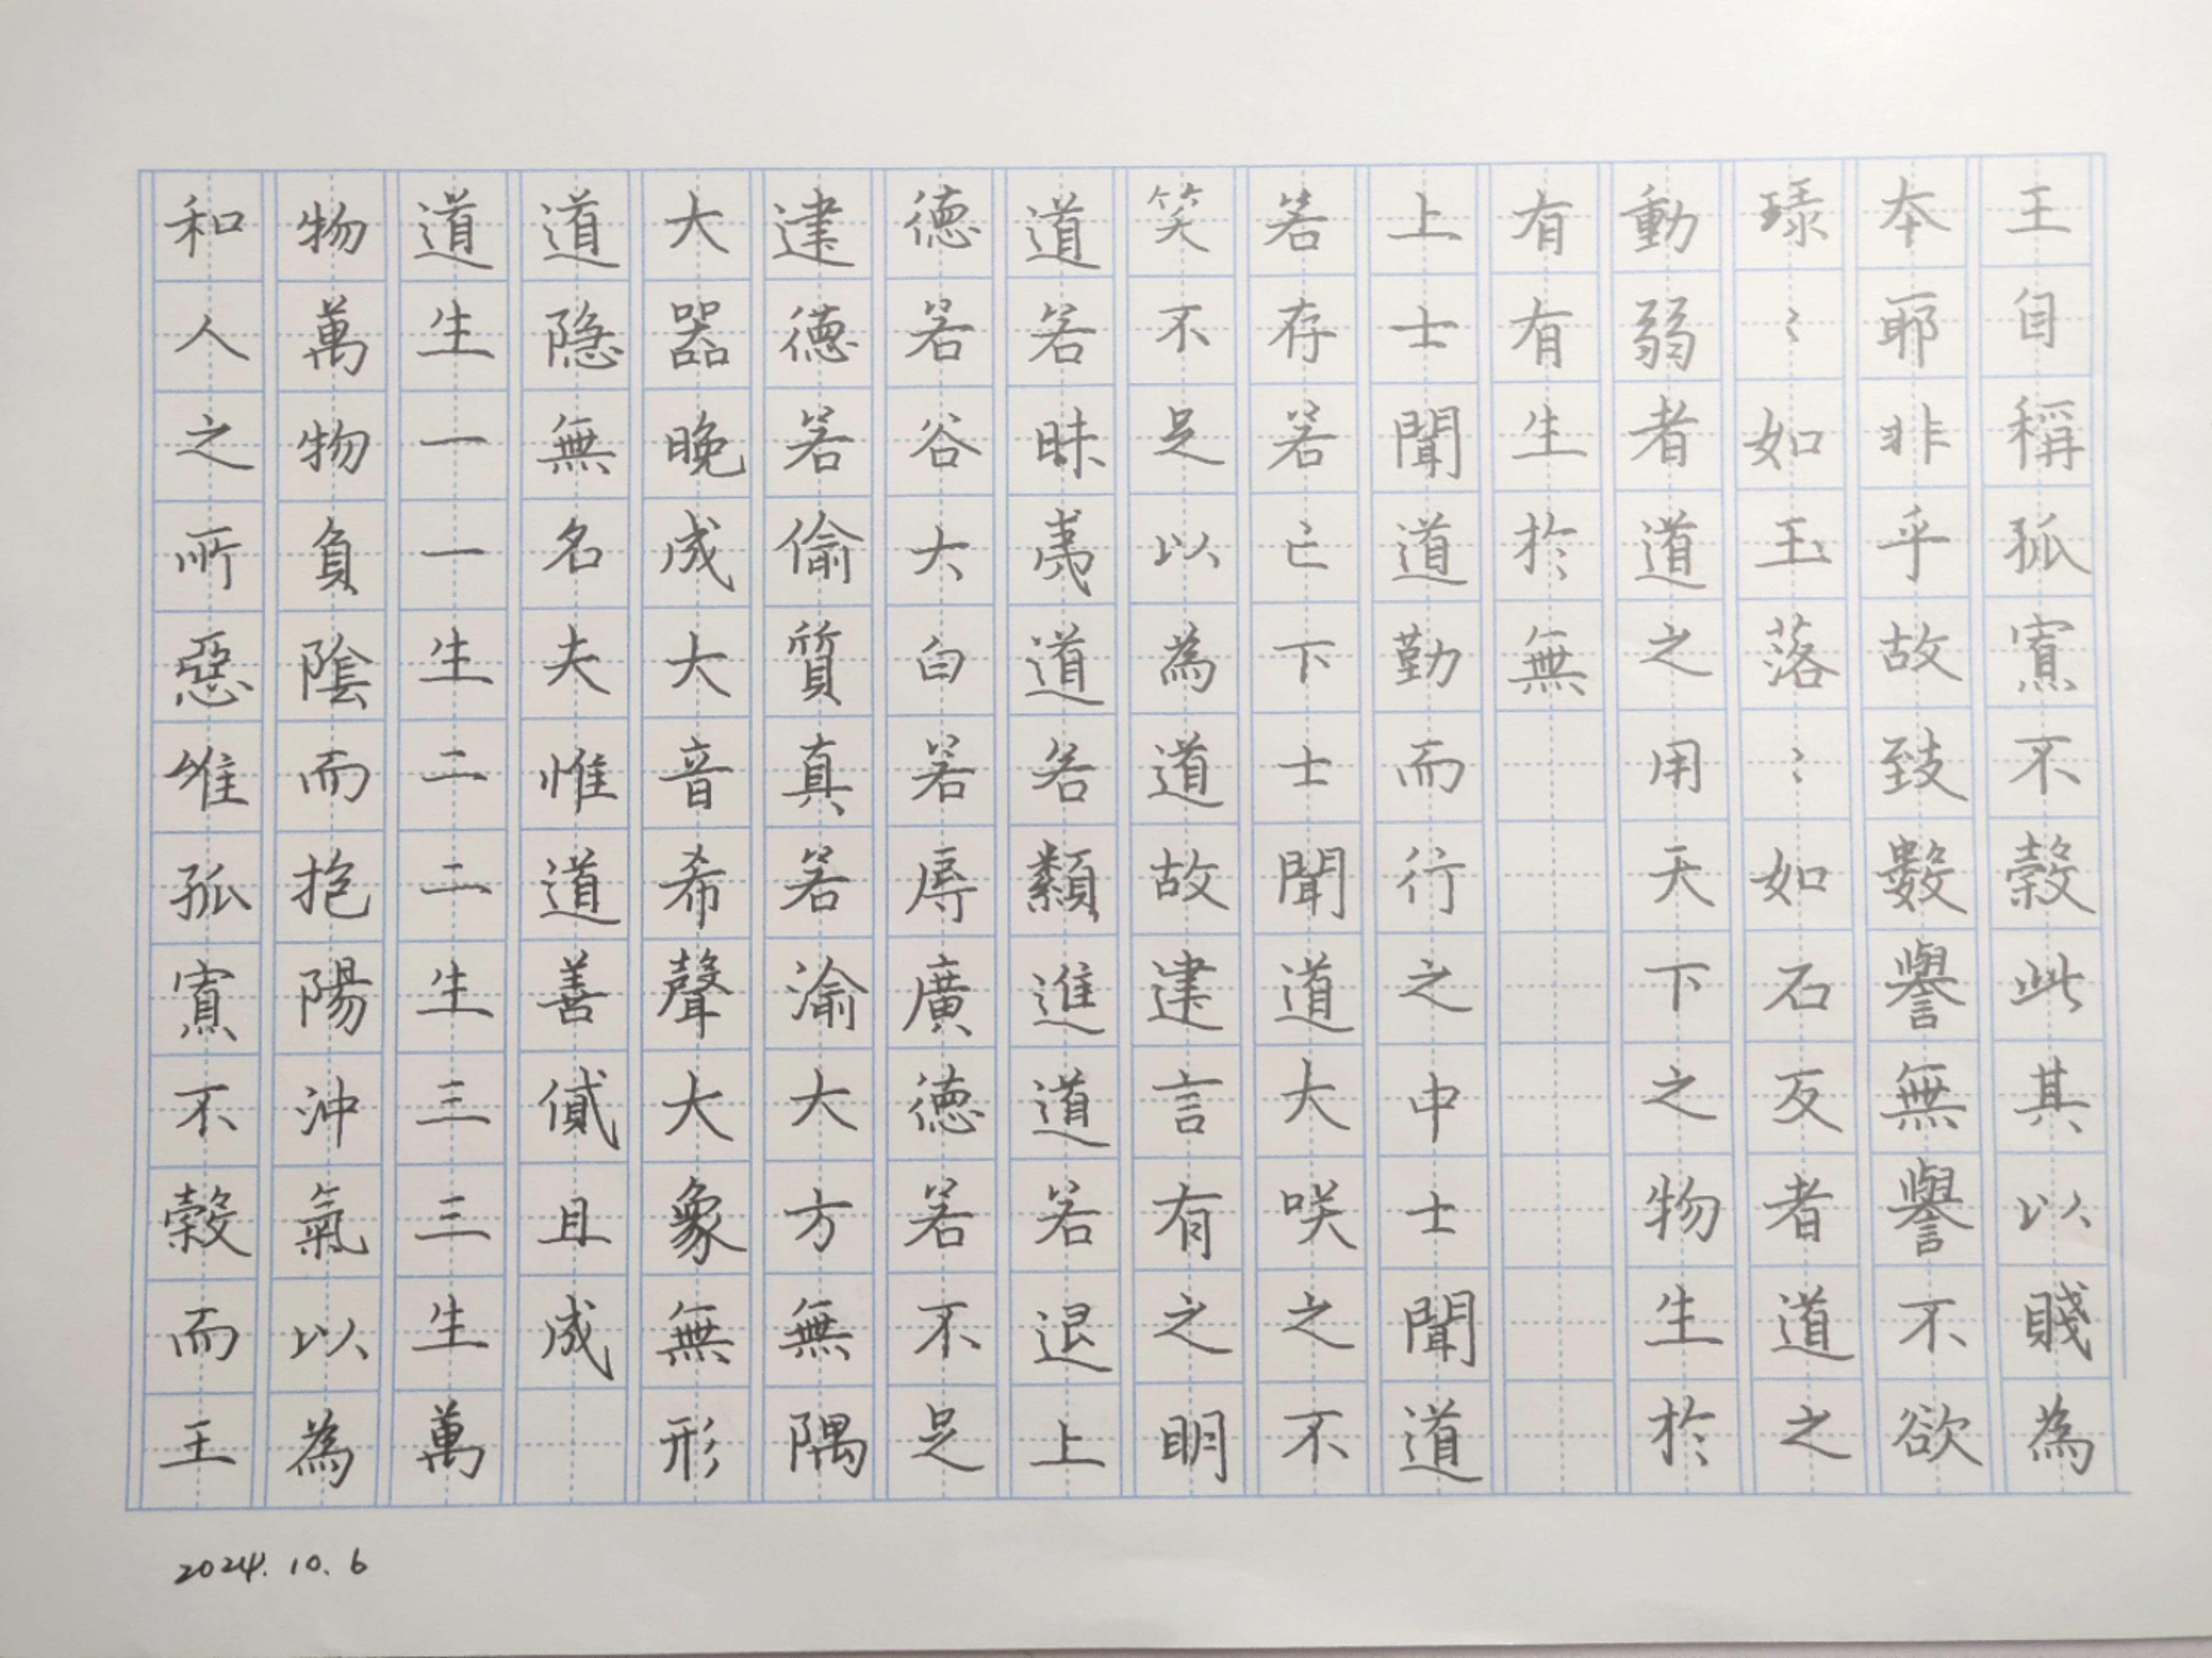 王自稱孤寡不穀此其以賤為
本耶非乎故致數譽無譽不欲
琭〻如玉落〻如石反者道之
動弱者道之用天下之物生於
有有生於無
上士聞道勤而行之中士聞道
若存若亡下士聞道大咲之不
笑不足以為道故建言有之明
道若昧夷道若類進道若退上
德若谷大白若辱廣德若不足
建德若偷質真若渝大方無隅
大器晚成大音希聲大象無形
道隐無名夫惟道善貸且成
道生一一生二二生三三生萬
物萬物負陰而抱陽沖氣以為
和人之所惡唯孤寡不穀而王
2024.10.6